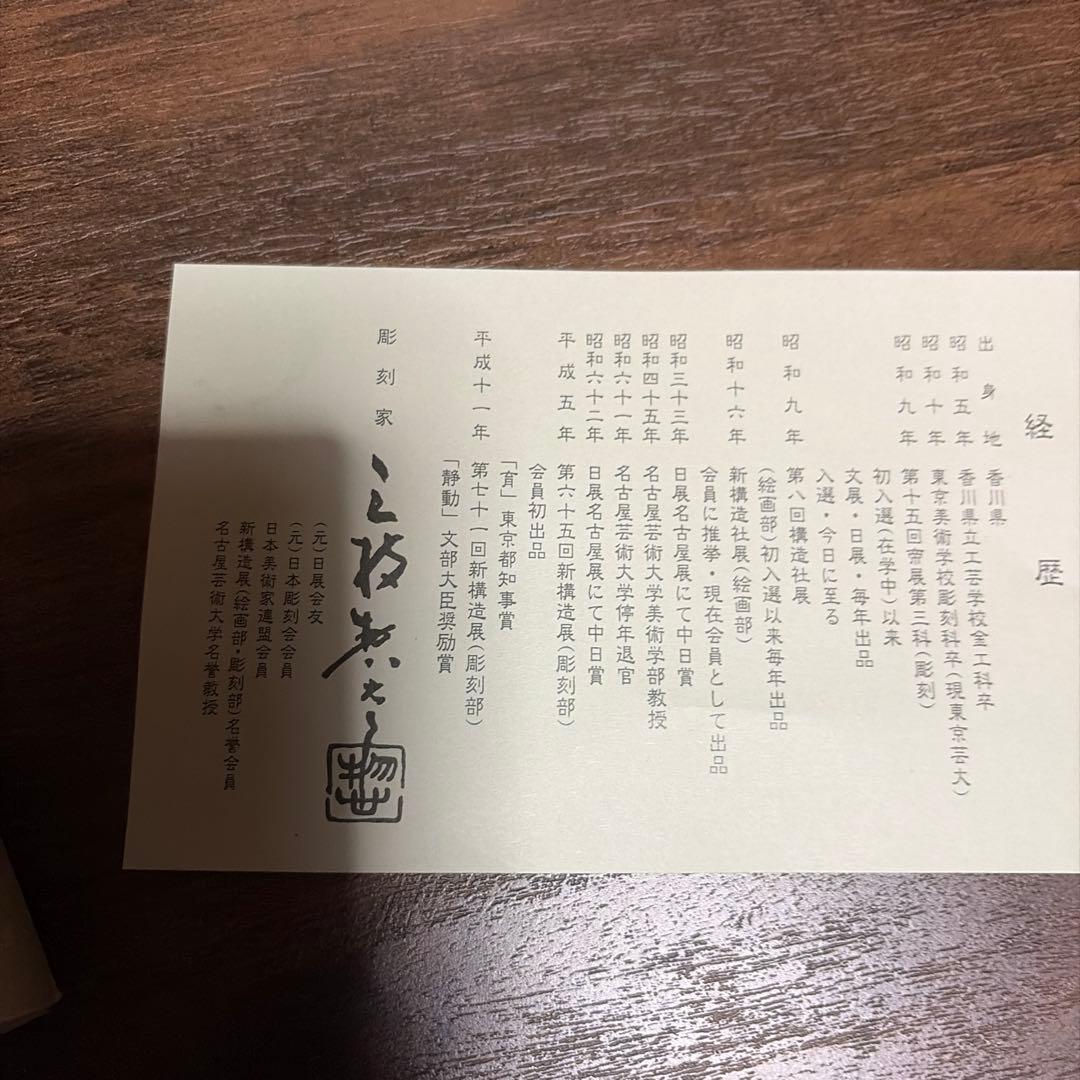 経歴
出身地 香川県
昭和五年 香川県立工芸学校金工科卒
昭和十年 東京美術学校彫刻科卒(現東京芸大)
昭和九年 第十五回帝展第三科(彫刻)
初入選(在学中)以来
文展・日展・毎年出品
入選・今日に至る
昭和九年 第八回構造社展
(絵画部)初入選以来毎年出品
昭和十六年 新構造社展(絵画部)
会員に推挙・現在会員として出品
昭和三十三年 日展名古屋展にて中日賞
昭和四十五年 名古屋芸術大学美術学部教授
昭和六十一年 名古屋芸術大学停年退官
昭和六十二年 日展名古屋展にて中日賞
平成五年 第六十五回新構造展(彫刻部)
会員初出品
「育」東京都知事賞
平成十一年 第七十一回新構造展(彫刻部)
「静動」文部大臣奨励賞
彫刻家 三枝惣太郎
(元)日展会友
(元)日本彫刻会会員
日本美術家連盟会員
新構造展(絵画部・彫刻部)名誉会員
名古屋芸術大学名誉教授